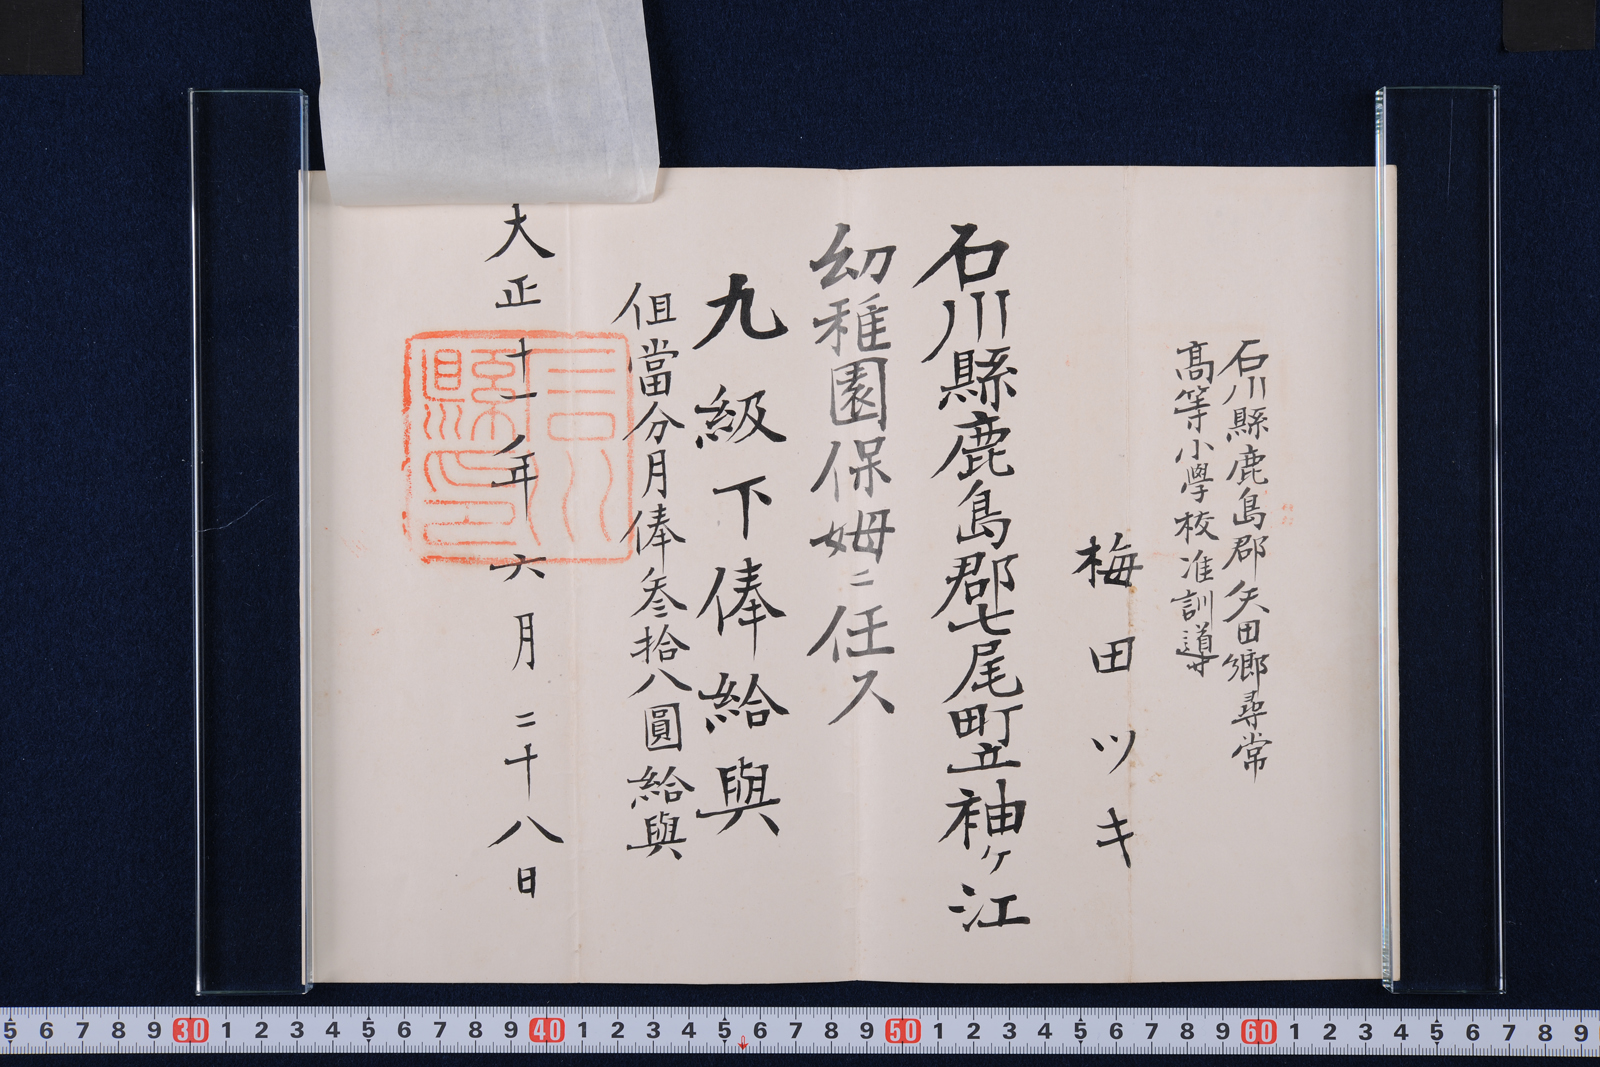 石川縣鹿島郡矢田郷尋常
高等小學校准訓導
梅田ツキ
石川縣鹿島郡七尾町立袖ヶ江
幼稚園保姆ニ任ス
九級下俸給與
但當分月俸叁拾八圓給與
大正十一年六月二十八日
石川
縣印
5 6 7 8 9 30 1 2 3 4 5 6 7 8 9 40 1 2 3 4 5 6 7 8 9 50 1 2 3 4 5 6 7 8 9 60 1 2 3 4 5 6 7 8 9